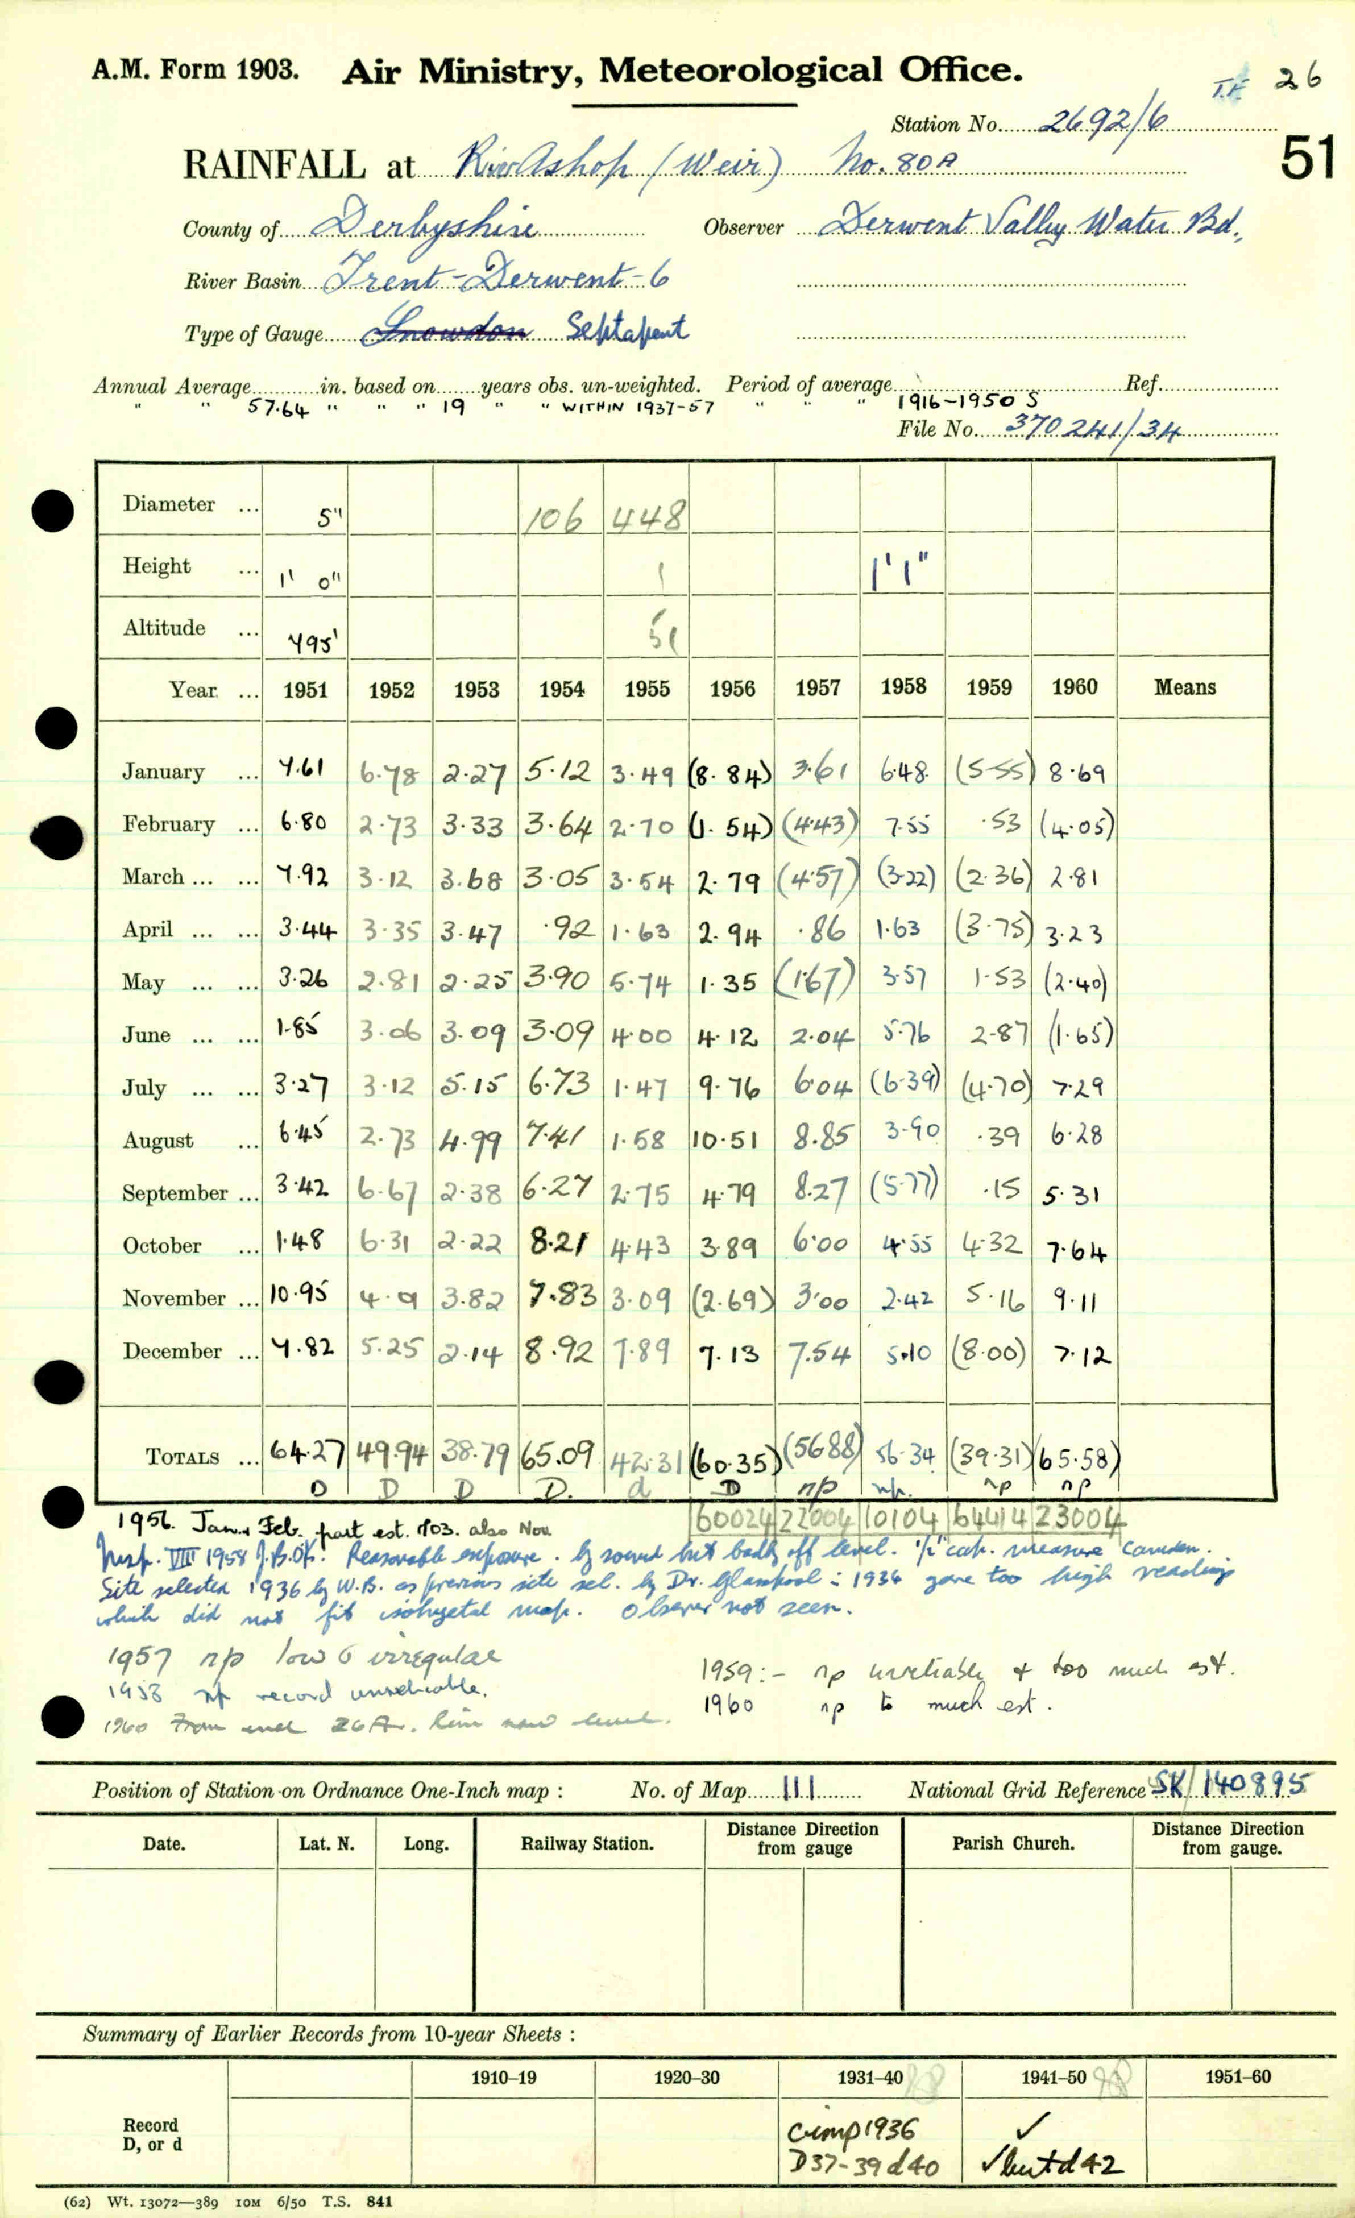 A.M. Form 1903. Air Ministry, Meteorological Office.
26
Station No. 2692/6
51
RAINFALL at River Ashop (Weir) No. 80A
County of Derbyshire Observer Derwent Valley Water Bd.
River Basin Trent-Derwent-6
Type of Gauge Snowdon Septapent
Annual Average in. based on years obs. un-weighted. Period of average Ref.
" " 57.64 " " " 19 " " WITHIN 1937-57 " " " 1916-1950 S
File No. 370241/34
Diameter ... 5" 106 448
Height ... 1' 0" 1 1'1"
Altitude ... 795' 51
Year ... 1951 1952 1953 1954 1955 1956 1957 1958 1959 1960 Means
January ... 7.61 6.78 2.27 5.12 3.49 (8.84) 3.61 6.48 (5.55) 8.69
February ... 6.80 2.73 3.33 3.64 2.70 (1.54) (4.43) 7.55 .53 (4.05)
March ... ... 7.92 3.12 3.68 3.05 3.54 2.79 (4.57) (3.22) (2.36) 2.81
April ... ... 3.44 3.35 3.47 .92 1.63 2.94 .86 1.63 (3.75) 3.23
May ... ... 3.26 2.81 2.25 3.90 5.74 1.35 (1.67) 3.57 1.53 (2.40)
June ... ... 1.85 3.06 3.09 3.09 4.00 4.12 2.04 5.76 2.87 (1.65)
July ... ... 3.27 3.12 5.15 6.73 1.47 9.76 6.04 (6.39) (4.70) 7.29
August ... 6.45 2.73 4.99 7.41 1.58 10.51 8.85 3.90 .39 6.28
September ... 3.42 6.67 2.38 6.27 2.75 4.79 8.27 (5.77) .15 5.31
October ... 1.48 6.31 2.22 8.21 4.43 3.89 6.00 4.55 4.32 7.64
November ... 10.95 4.01 3.82 7.83 3.09 (2.69) 3.00 2.42 5.16 9.11
December ... 7.82 5.25 2.14 8.92 7.89 7.13 7.54 5.10 (8.00) 7.12
TOTALS ... 64.27 49.94 38.79 65.09 42.31 (60.35) (56.88) 56.34 (39.31) (65.58)
D D D D. d D np np. np np
60024 22004 10104 64414 23004
1956. Jan., Feb. part est. 1903. also Nov
Insp. VIII 1958 Reasonable exposure. sound but badly off level. 1/2" cap. measure Camden.
Site selected 1936 by W.B. as previous site sel. by Dr. Glasspool 1936 gave too high readings
which did not fit isohyetal map. Observer not seen.
1957 np low & irregular
1958 np record unreliable.
1960 From end Rim now level.
1959:- np unreliable & too much est.
1960 np to much est.
Position of Station on Ordnance One-Inch map : No. of Map 111 National Grid Reference SK/140895
Date. Lat. N. Long. Railway Station. Distance Direction from gauge Parish Church. Distance Direction from gauge.
Summary of Earlier Records from 10-year Sheets :
1910–19 1920–30 1931–40 1941–50 1951–60
Record D, or d
comp 1936 ✓
D37-39 d40 ✓ but d42
(62) Wt. 13072—389 10M 6/50 T.S. 841